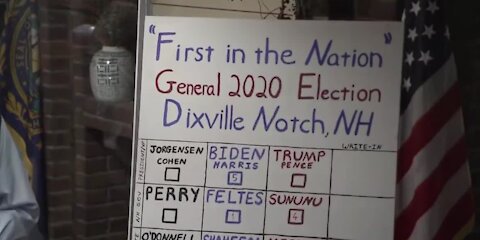 "First in the Nation"
General 2020 Election
Dixville Notch, NH
WRITE-IN
JORGENSEN BIDEN TRUMP
COHEN HARRIS PENCE
5
PERRY FELTES SUNUNU
1 4
O'DONNELL SHAHEEN